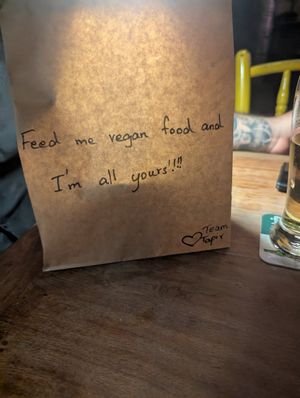 Feed me vegan food and
I'm all yours!!!
♡ Team
Tapir